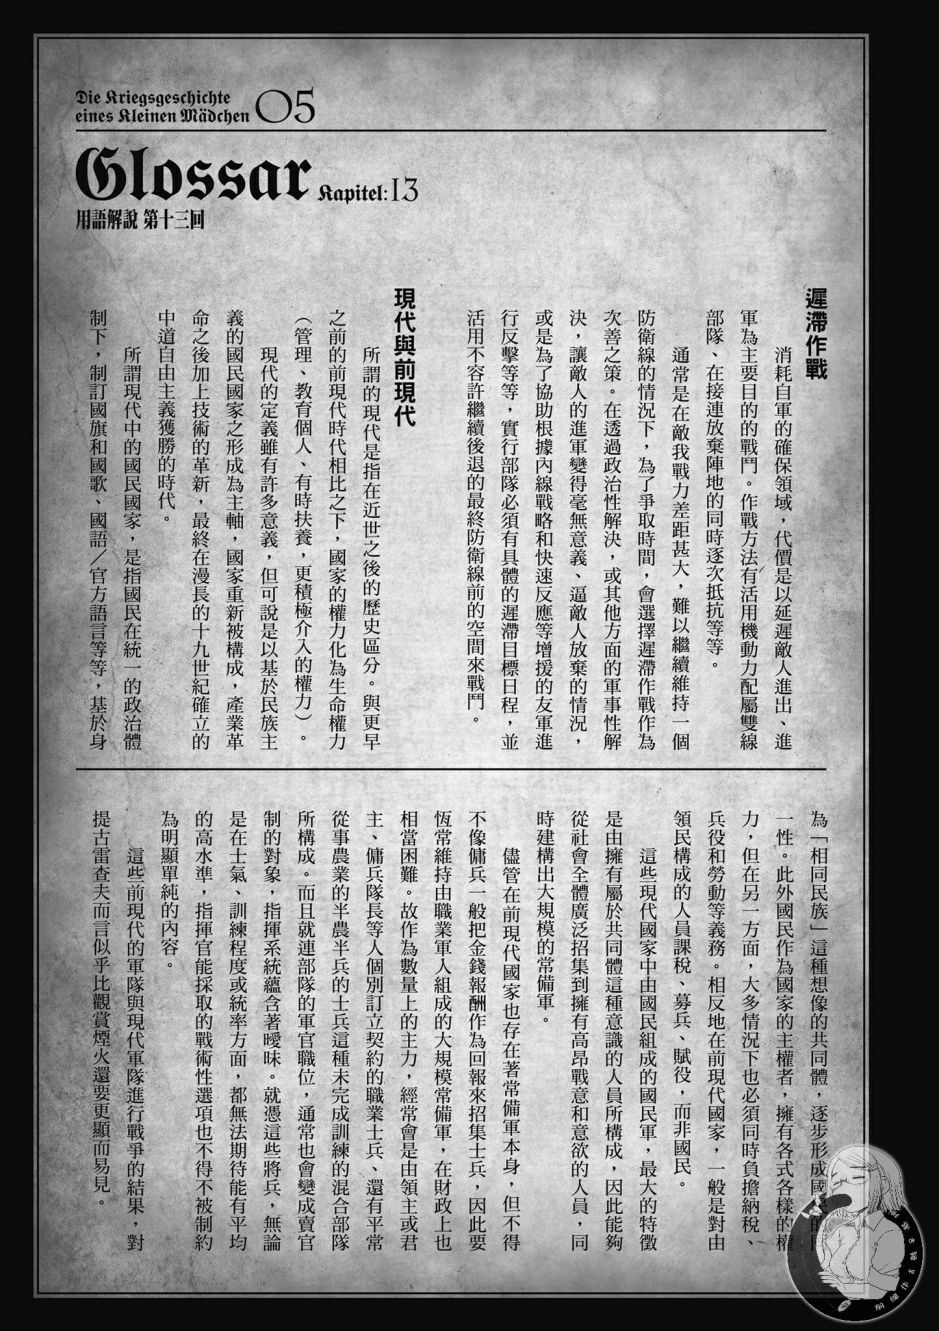 Die Kriegsgeschichte
eines Kleinen Mädchen 05
Glossar Kapitel:13
用語解說 第十三回
遲滯作戰
消耗自軍的確保領域，代價是以延遲敵人進出、進
軍為主要目的的戰鬥。作戰方法有活用機動力配屬雙線
部隊、在接連放棄陣地的同時逐次抵抗等等。
通常是在敵我戰力差距甚大，難以繼續維持一個
防衛線的情況下，為了爭取時間，會選擇遲滯作戰作為
次善之策。在透過政治性解決，或其他方面的軍事性解
決，讓敵人的進軍變得毫無意義、逼敵人放棄的情況，
或是為了協助根據內線戰略和快速反應等增援的友軍進
行反擊等等，實行部隊必須有具體的遲滯目標日程，並
活用不容許繼續後退的最終防衛線前的空間來戰鬥。
現代與前現代
所謂的現代是指在近世之後的歷史區分。與更早
之前的前現代時代相比之下，國家的權力化為生命權力
（管理、教育個人、有時扶養，更積極介入的權力）。
現代的定義雖有許多意義，但可說是以基於民族主
義的國民國家之形成為主軸，國家重新被構成，產業革
命之後加上技術的革新，最終在漫長的十九世紀確立的
中道自由主義獲勝的時代。
所謂現代中的國民國家，是指國民在統一的政治體
制下，制訂國旗和國歌、國語／官方語言等等，基於身
為「相同民族」這種想像的共同體，逐步形成國
一性。此外國民作為國家的主權者，擁有各式各樣的權
力，但在另一方面，大多情況下也必須同時負擔納稅、
兵役和勞動等義務。相反地在前現代國家，一般是對由
領民構成的人員課稅、募兵、賦役，而非國民。
這些現代國家中由國民組成的國民軍，最大的特徵
是由擁有屬於共同體這種意識的人員所構成，因此能夠
從社會全體廣泛招集到擁有高昂戰意和意欲的人員，同
時建構出大規模的常備軍。
儘管在前現代國家也存在著常備軍本身，但不得
不像傭兵一般把金錢報酬作為回報來招集士兵，因此要
恆常維持由職業軍人組成的大規模常備軍，在財政上也
相當困難。故作為數量上的主力，經常會是由領主或君
主、傭兵隊長等人個別訂立契約的職業士兵、還有平常
從事農業的半農半兵的士兵這種未完成訓練的混合部隊
所構成。而且就連部隊的軍官職位，通常也會變成賣官
制的對象，指揮系統蘊含著曖昧。就憑這些將兵，無論
是在士氣、訓練程度或統率方面，都無法期待能有平均
的高水準，指揮官能採取的戰術性選項也不得不被制約
為明顯單純的內容。
這些前現代的軍隊與現代軍隊進行戰爭的結果，對
提古雷查夫而言似乎比觀賞煙火還要更顯而易見。